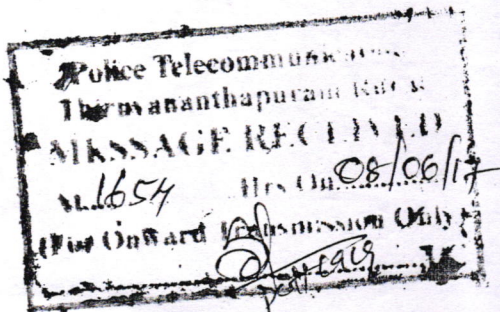 Police Telecommunication
Thiruvananthapuram Rural
MESSAGE RECEIVED
At 1654 Hrs On 08/06/17
(For Onward Transmission Only)